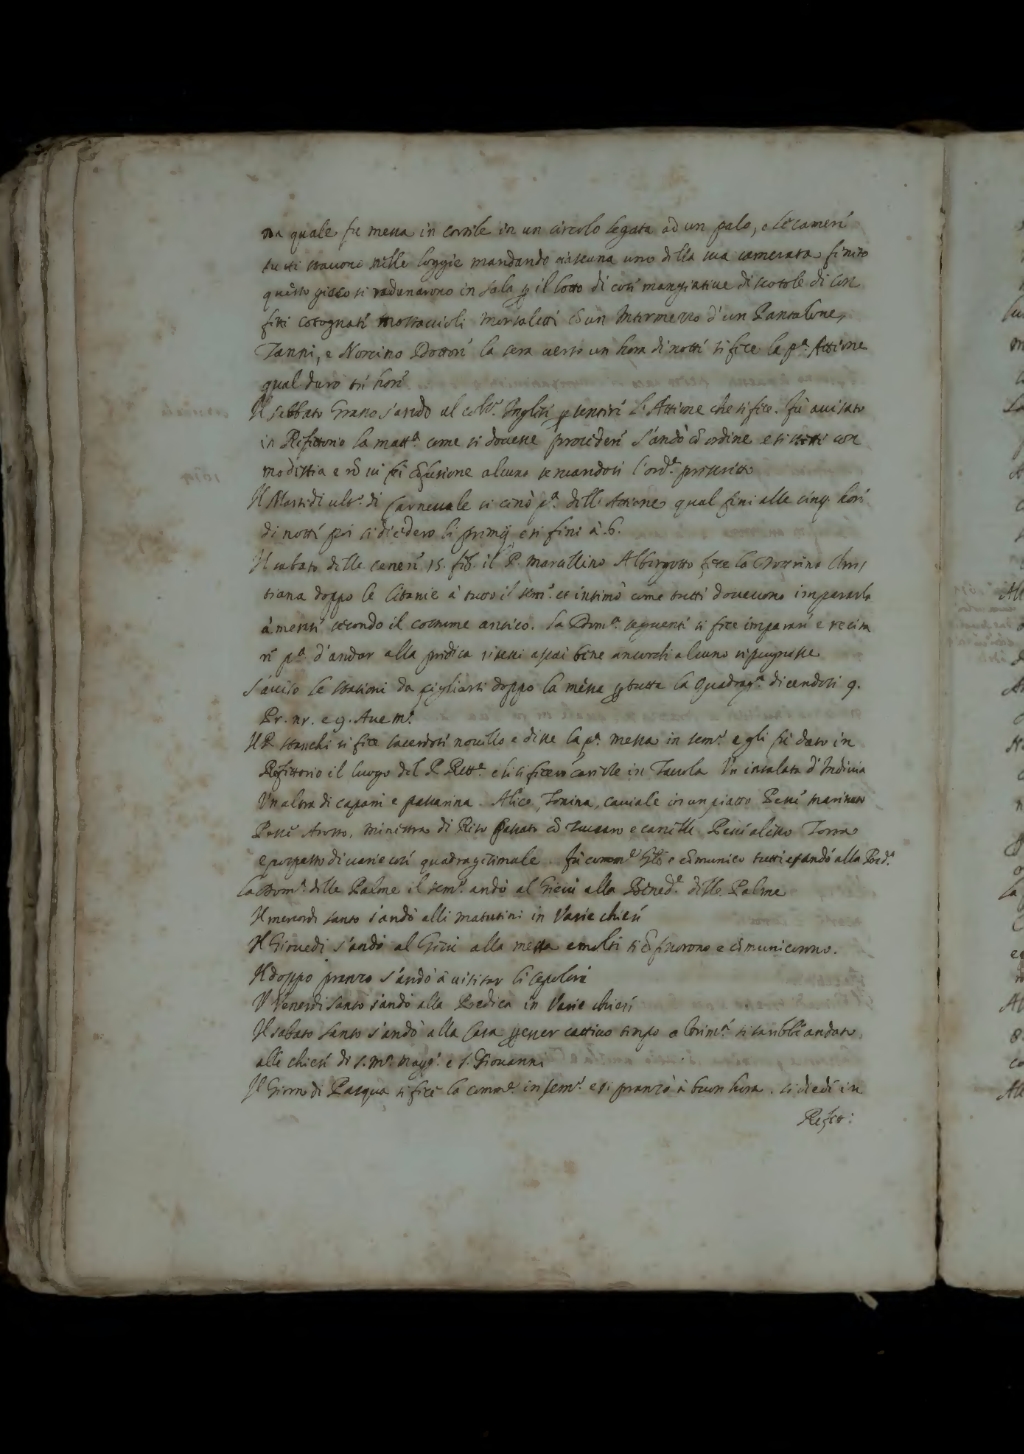 na quale fu messa in cortile in un circolo legata ad un palo, e le cameri
tutti stavono nelle loggie mandando ciascuna uno della sua camerata finito
questo gioco si radunarono in Sala p il lotto di cosi mangiative di scatole di con
fitti cotognati mostaccioli mortaletti & un Intermezzo d'un Pantalone,
Zanni, e Norcino Dottori la sera verso un hora di notti si fece la pª Attione
qual duro tri hori
Il sabbato Grasso s'andò al colº Inglesi p sentiri l'Attione che si fece. fu avisato
in Refittorio la mattª come si dovesse procederi s'andò cō ordine e si stetti con
modestia e nō vi fu cōfusione alcuna servandosi l'ordᵉ prescritto
Il Martedi ultº di Carnevale si cenò pª delle Attione qual finì alle cinqʒ hori
di notti poi si diedero li primij e si finì à 6.
Il sabato delle ceneri 15. feb. il P. Marcellino Albergotto fece la Dottrina Chris
tiana doppo le litanie à tutto il semº et intimò come tutti dovevono impararla
à menti secondo il costume antico. la Domª seguenti si fece imparari e recita
ri pª d'andar alla predica riuscì assai bene ancorchi alcuno ripugnasse
S'avisò le stationi da pigliarsi doppo la messa p tutta la Quadragª dicendosi 9.
Pr. nr. e 9. Ave mª
Il P. Stucchi si fece sacerdoti novello e disse la pª messa in semº e gli fù dato in
Refittorio il luogo del P. Rettᵉ e li si fecero carille in Tavola Un insalata d'Indivia
Un altra di capari e passarina. Alice, Tonina, caviale in un piatto Pesci marinato
Pesci Arosto, minestra di Riso passato cō Zuccaro e canella Pesci alesso Torta
e pospasto di varie cosi quadragesimale. fù comonᵉ Gle e comunicò tutti e s'andò alla Predª
La Domª delle Palme il semº andò al Giesù alla Benedᵉ delle Palme
Il mercordi santo s'andò alli matutini in Varie chiesi
Il Giovedi s'andò al Giesù alla messa e molti si cōfessorono e cōmunicorno.
Il doppo pranzo s'andò à visitar li sepolcri
Il Venerdi santo s'andò alla Predica in Varie chiesi
Il sabato santo s'andò alla Casa p esser cattivo tempo altrimᵗⁱ si sarebbi andato
alle chiesi di S. Mª Maggʳᵉ e S. Giovanni
Il Giorno di Pasqua si fece la commᵉ in semº e si pranzò à buon hora. si diedi in
Refetto: